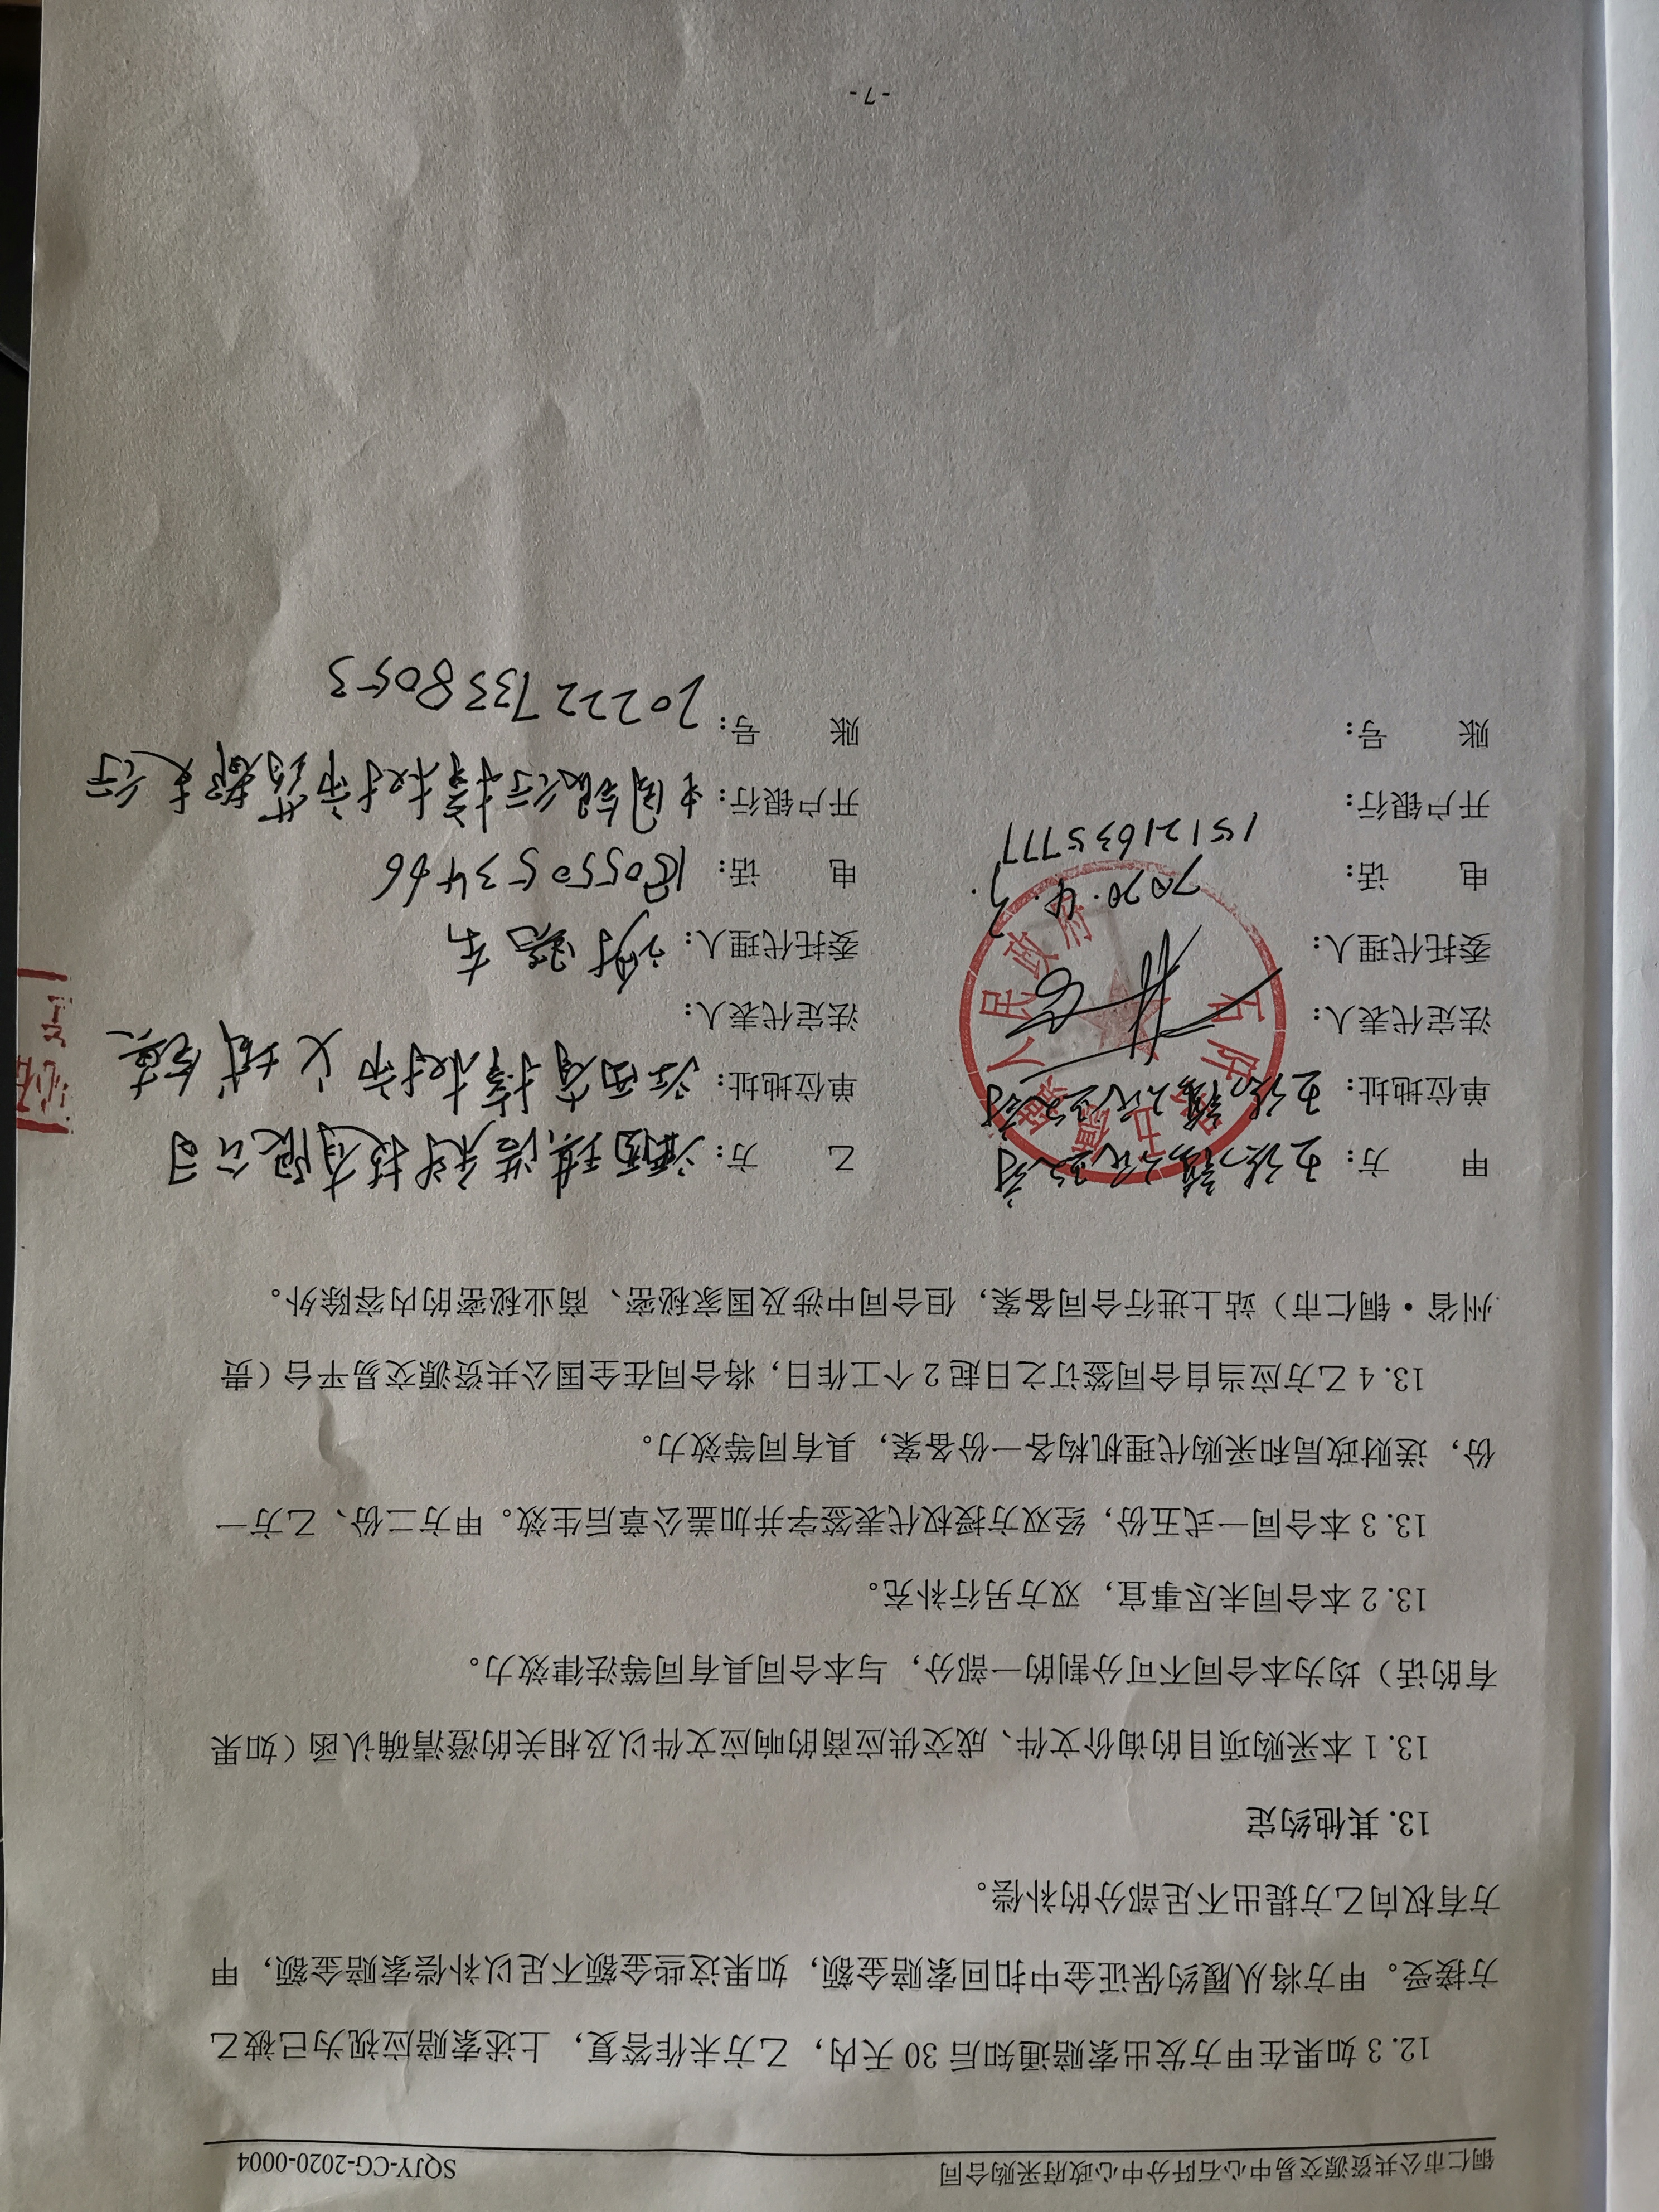 铜仁市公共资源交易中心石阡分中心政府采购合同 SQJY-CG-2020-0004
12.3 如果在甲方发出索赔通知后 30 天内，乙方未作答复，上述索赔应视为已被乙
方接受。甲方将从履约保证金中扣回索赔金额，如果这些金额不足以补偿索赔金额，甲
方有权向乙方提出不足部分的补偿。
13. 其他约定
13.1 本采购项目的询价文件、成交供应商的响应文件以及相关的澄清确认函（如果
有的话）均为本合同不可分割的一部分，与本合同具有同等法律效力。
13.2 本合同未尽事宜，双方另行补充。
13.3 本合同一式五份，经双方授权代表签字并加盖公章后生效。甲方二份、乙方一
份，送财政局和采购代理机构各一份备案，具有同等效力。
13.4 乙方应当自合同签订之日起 2 个工作日，将合同在全国公共资源交易平台（贵
州省·铜仁市）站上进行合同备案，但合同中涉及国家秘密、商业秘密的内容除外。
甲 方：
单位地址：
法定代表人：
委托代理人：
2020.4.3.
电 话：15121635777
开户银行：
账 号：
石阡县 人民政府
乙 方：江西 诺科技有限公司
单位地址：江西省樟树市 城
法定代表人：
委托代理人：
电 话：18055053466
开户银行：中国银行樟树市药都支行
账 号：202227338053
-7-